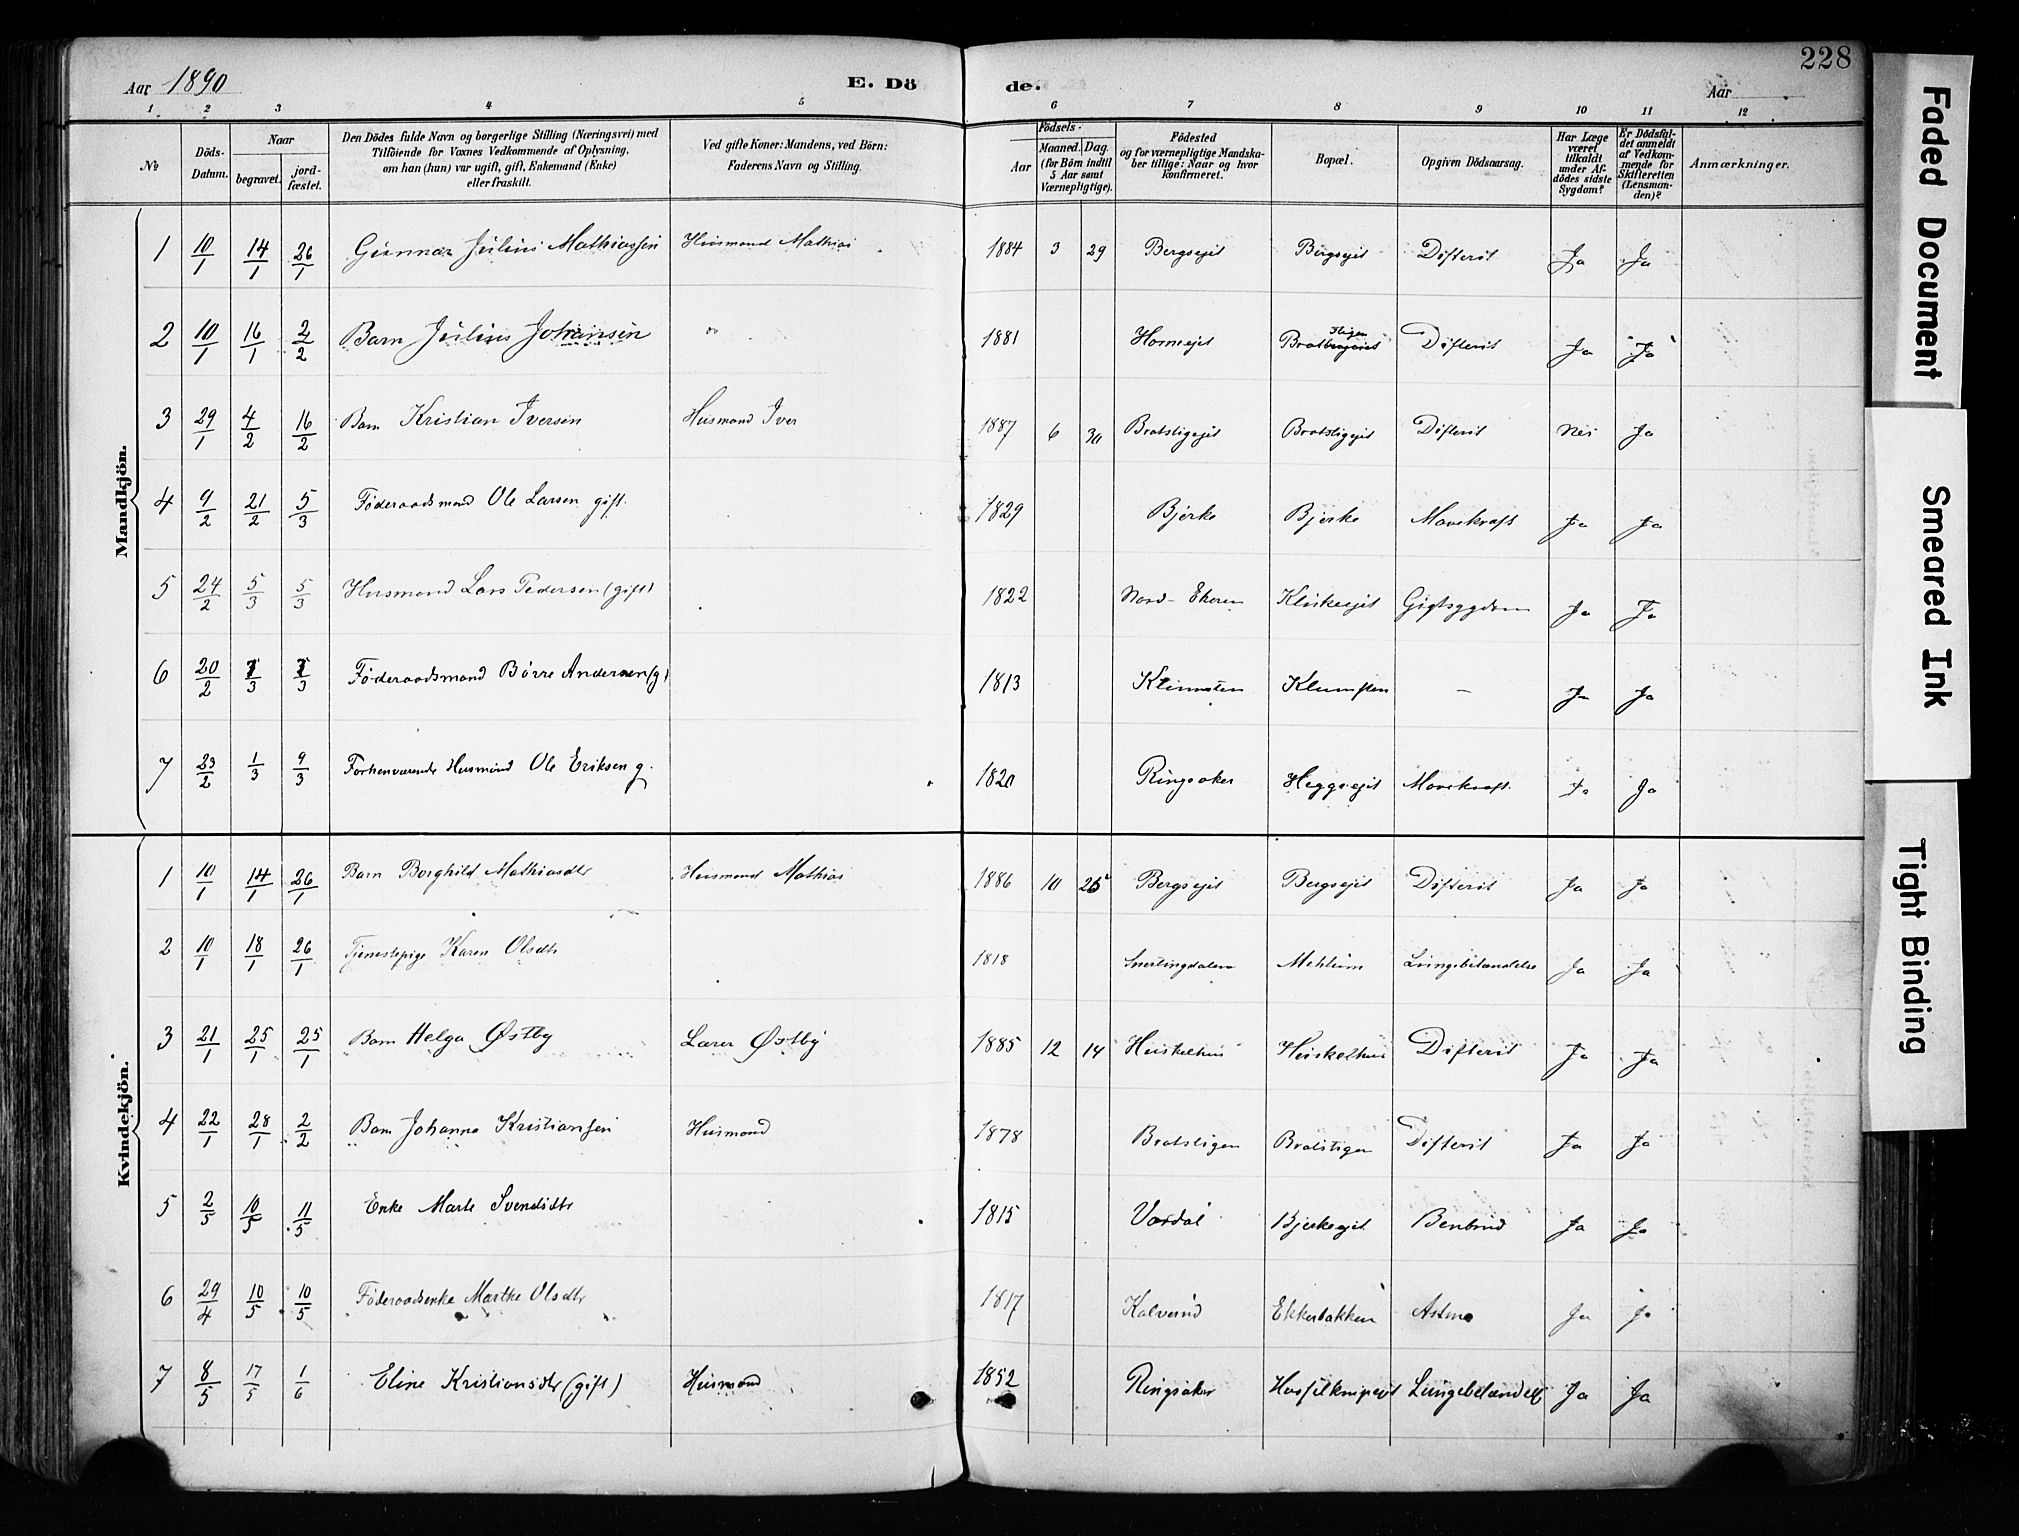 228
Aar 1890 E. Dö de. Aar
1 2 3 4 5 6 7 8 9 10 11 12
№ Döds-Datum. Naar begravet. jord-fæstet. Den Dödes fulde Navn og borgerlige Stilling (Næringsvei) med Tilföiende for Voxnes Vedkommende af Oplysning, om han (hun) var ugift, gift, Enkemand (Enke) eller fraskilt. Ved gifte Koner: Mandens, ved Börn: Faderens Navn og Stilling. Födsels- Aar Maaned. Dag. (for Börn indtil 5 Aar samt Værnepligtige). Födested og for værnepligtige Mandskaber tillige: Naar og hvor konfirmeret. Bopæl. Opgiven Dödsaarsag. Har Læge været tilkaldt under Afdödes sidste Sygdom? Er Dödsfaldet anmeldt af Vedkommende for Skifteretten (Lensmanden)? Anmærkninger.
Mandkjön.
1 10/1 14/1 26/1 Gunnar Julius Mathiassen Husmand Mathias 1884 3 29 Bergsejet Bergsejet Difterit Ja Ja
2 10/1 16/1 2/2 Barn Julius Johansen " 1881 Hornsejet Bratstigen Difterit Ja Ja
3 29/1 4/2 16/2 Barn Kristian Iversen Husmand Iver 1887 6 30 Bratstigejet Bratstigejet Difterit Nei Ja
4 9/2 21/2 5/3 Føderaadsmand Ole Larsen gift. 1829 Bjerke Bjerke Mavekræft Ja Ja
5 24/2 5/3 5/3 Husmand Lars Pedersen (gift) 1822 Nord-Ekeren Gigtsygdom Ja Ja
6 20/2 Føderaadsmand Børre Andersen (g) 1813 Klumsten Klumsten — Ja Ja
7 23/2 1/3 9/3 Forhenværende Husmand Ole Eriksen g. 1820 Ringsaker Heggsejet Mavekræft. Ja Ja
Kvindekjön.
1 10/1 14/1 26/1 Barn Borghild Mathiasdtr Husmand Mathias 1886 10 25 Bergsejet Bergsejet Difterit Ja Ja
2 10/1 18/1 26/1 Tjenestepige Karen Olsdtr 1818 Snertingdalen Mehlum Lungebetændelse Ja Ja
3 21/1 25/1 25/1 Barn Helga Østby Lærer Østby 1885 12 14 Huskelhus Huskelhus Difterit Ja Ja
4 22/1 28/1 2/2 Barn Johanna Kristiansen Husmand 1878 Bratstigen Bratstigen Difterit Ja Ja
5 2/5 10/5 11/5 Enke Marte Svendsdtr 1815 Vardal Bjerkesejet Benbrud Ja Ja
6 29/4 10/5 10/5 Føderaadsenke Marthe Olsdtr 1817 Kalverud Ekkerbakken Astma Ja Ja
7 8/5 17/5 1/6 Eline Kristiansdtr (gift) Husmand 1852 Ringsaker Lungebetændelse Ja Ja
Faded Document
Smeared Ink
Tight Binding